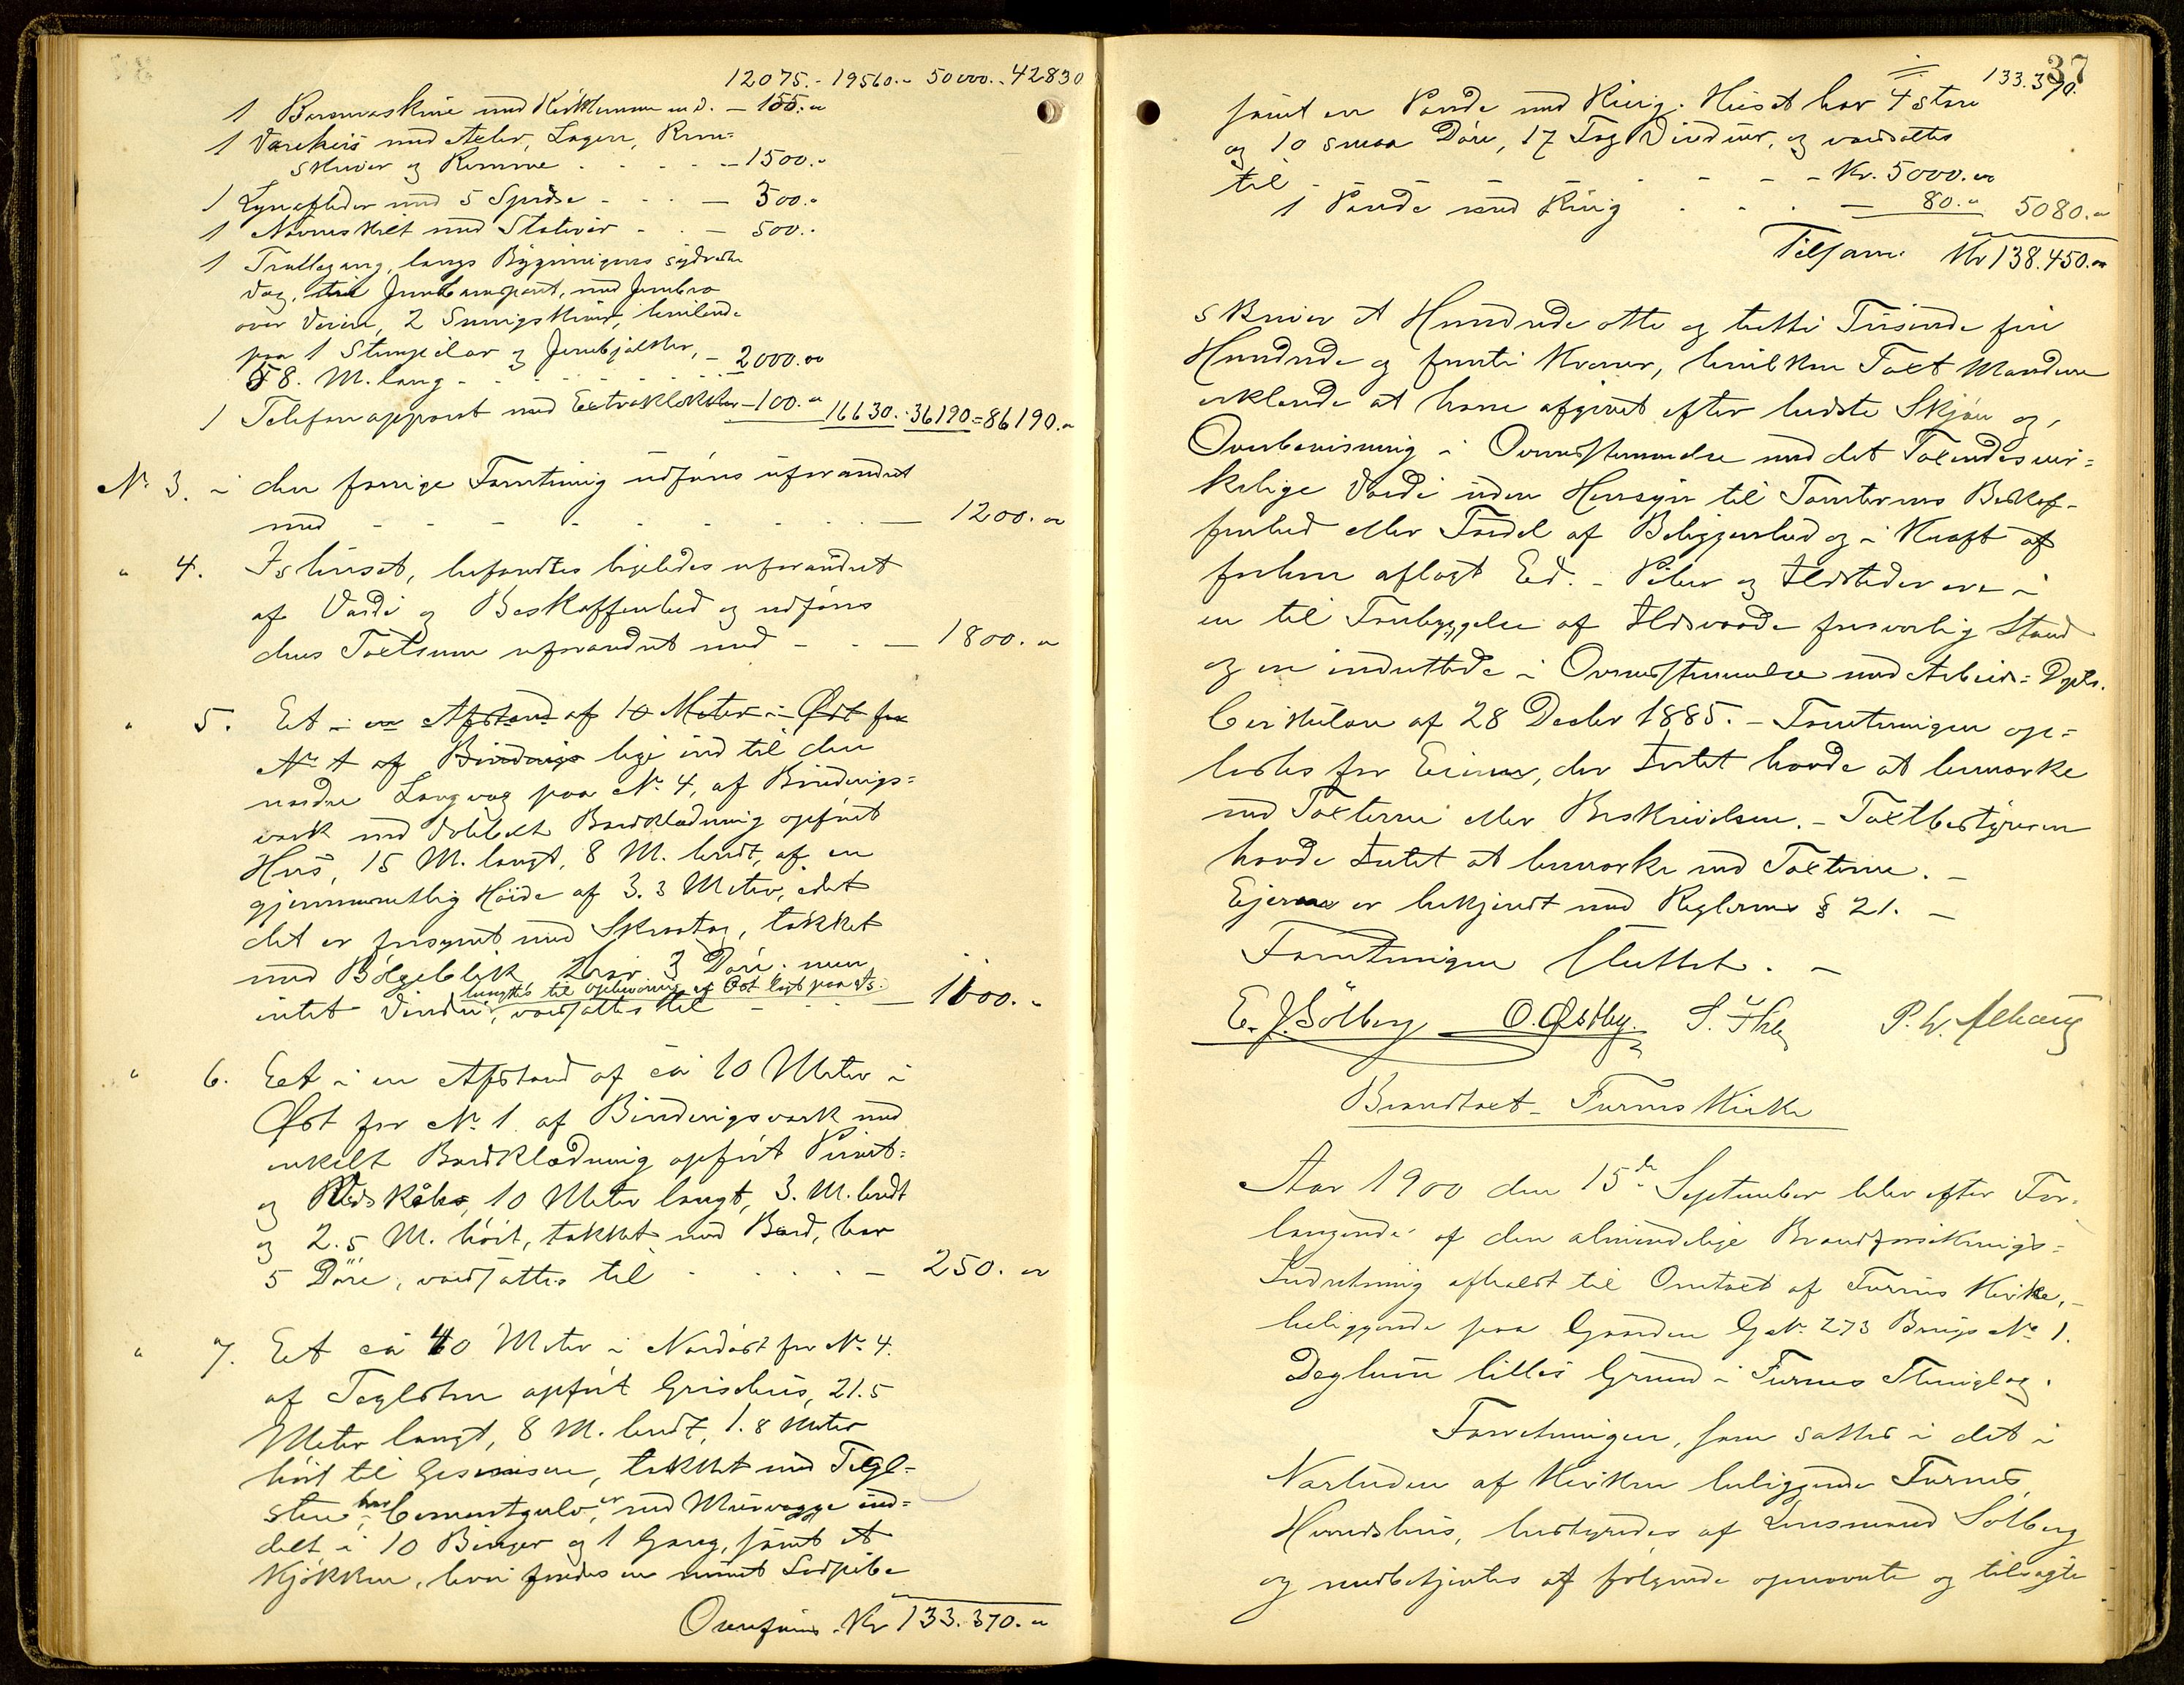 12075.- 19560.- 50000.- 42830
1 med - 155.-
1 Vareheis med Axler, Lagere, Rem=
skiver og Remme - 1500.-
1 Lynafleder med 5 Spidse - 300.-
1 Navneskilt med Stativer - 500.-
1 Trallegang, langs Bygningens sydvestre
Væg, Jernbro
over Veien, 2 hvilende
paa 1 Stenpilar og Jernbjælker, - 2000.00
58. M. lang
1 Telefonapparat med Extraklokker - 100.- 16630.- 36190 = 86190.-
No 3. i den forrige Forretning udføres uforandret
med - 1200.00
" 4. Ishuset, befandtes ligeledes uforandret
af Værdi og Beskaffenhed og udføres
dens Taxtsum uforandret med - 1800.-
" 5. Et i en Afstand af 10 Meter i Øst for
No 1 af Bindings lige ind til den
nordre Langvæg paa No 4, af Bindings=
værk med dobbelt Bordklædning opført
Hus, 15 M. langt, 8 M. bredt, af en
gjennemsnitlig Høide af 3.3 Meter, idet
det er forsynet med Skraatag, tækket
med Bølgeblik, har 3 Døre men
benyttes til Opbevaring af Ost lagt paa Is.
intet Vindu, værdsattes til - 1000.-
" 6. Et i en Afstand af ca 10 Meter i
Øst for No 1. af Bindingsværk med
enkelt Bordklædning opført Privet=
og Vedskåle, 10 Meter langt, 3. M. bredt
og 2.5 M. høit, tækket med Bord, har
5 Døre, værdsattes til - 250.00
" 7. Et ca 40 Meter i Nordøst for No 4.
af Teglsten opført Grisehus, 21.5
Meter langt, 8 M. bredt, 1.8 Meter
høit til Gesimsen, tækket med Tegl-
sten, har Cementgulv, er med Murvægge ind=
delt i 10 Binger og 1 Gang, samt et
Kjøkken, hvori findes en muret Sodpibe
Overføres Kr 133.370.-
37
133.370.
samt en Pande med Ring. Huset har 4 store
og 10 smaa Døre, 17 Fag Vinduer, og værdsattes
til - Kr. 5000.00
1 Pande med Ring - 80.- 5080.-
Tilsam. Kr 138.450.00
skriver et Hundrede otte og tretti Tusinde fire
Hundrede og femti Kroner, hvilken Taxt Mændene
erklærede at have afgivet efter bedste Skjøn og
Overbevisning i Overensstemmelse med det Taxeredes vir=
kelige Værdi uden Hensyn til Tomternes Beskaf-
fenhed eller Fordel af Beliggenhed og i Kraft af
forhen aflagt Ed. - Piber og Ildsteder ere i
en til Forebyggelse af Ildsvaade forsvarlig Stand
og ere indrettede i Overensstemmelse med Arbeids=Dpts.
Cirkulære af 28 Decbr 1885. - Forretningen op=
læstes for Eieren, der Intet havde at bemærke
ved Taxterne eller Beskrivelsen. - Taxtbestyreren
havde Intet at bemærke ved Taxterne. -
Ejerne er bekjendt med Reglernes § 21. -
Forretningen sluttet. -
E. J. Sölberg O. Østby. P. W. Alhaug
Brandtaxt - Furnes Kirke
Aar 1900 den 15de September blev efter For-
langende af den almindelige Brandforsikrings=
Indretning afholdt til Omtaxt af Furnes Kirke, -
beliggende paa Gaarden GNo 273 Brugs No 1.
Deglum lilles Grund i Furnes Thinglag.
Forretningen, som sattes i det i
Nærheden af Kirken beliggende Furnes
Herredshus, bestyredes af Lensmand Sölberg
og medbetjentes af følgende opnævnte og tilsagte